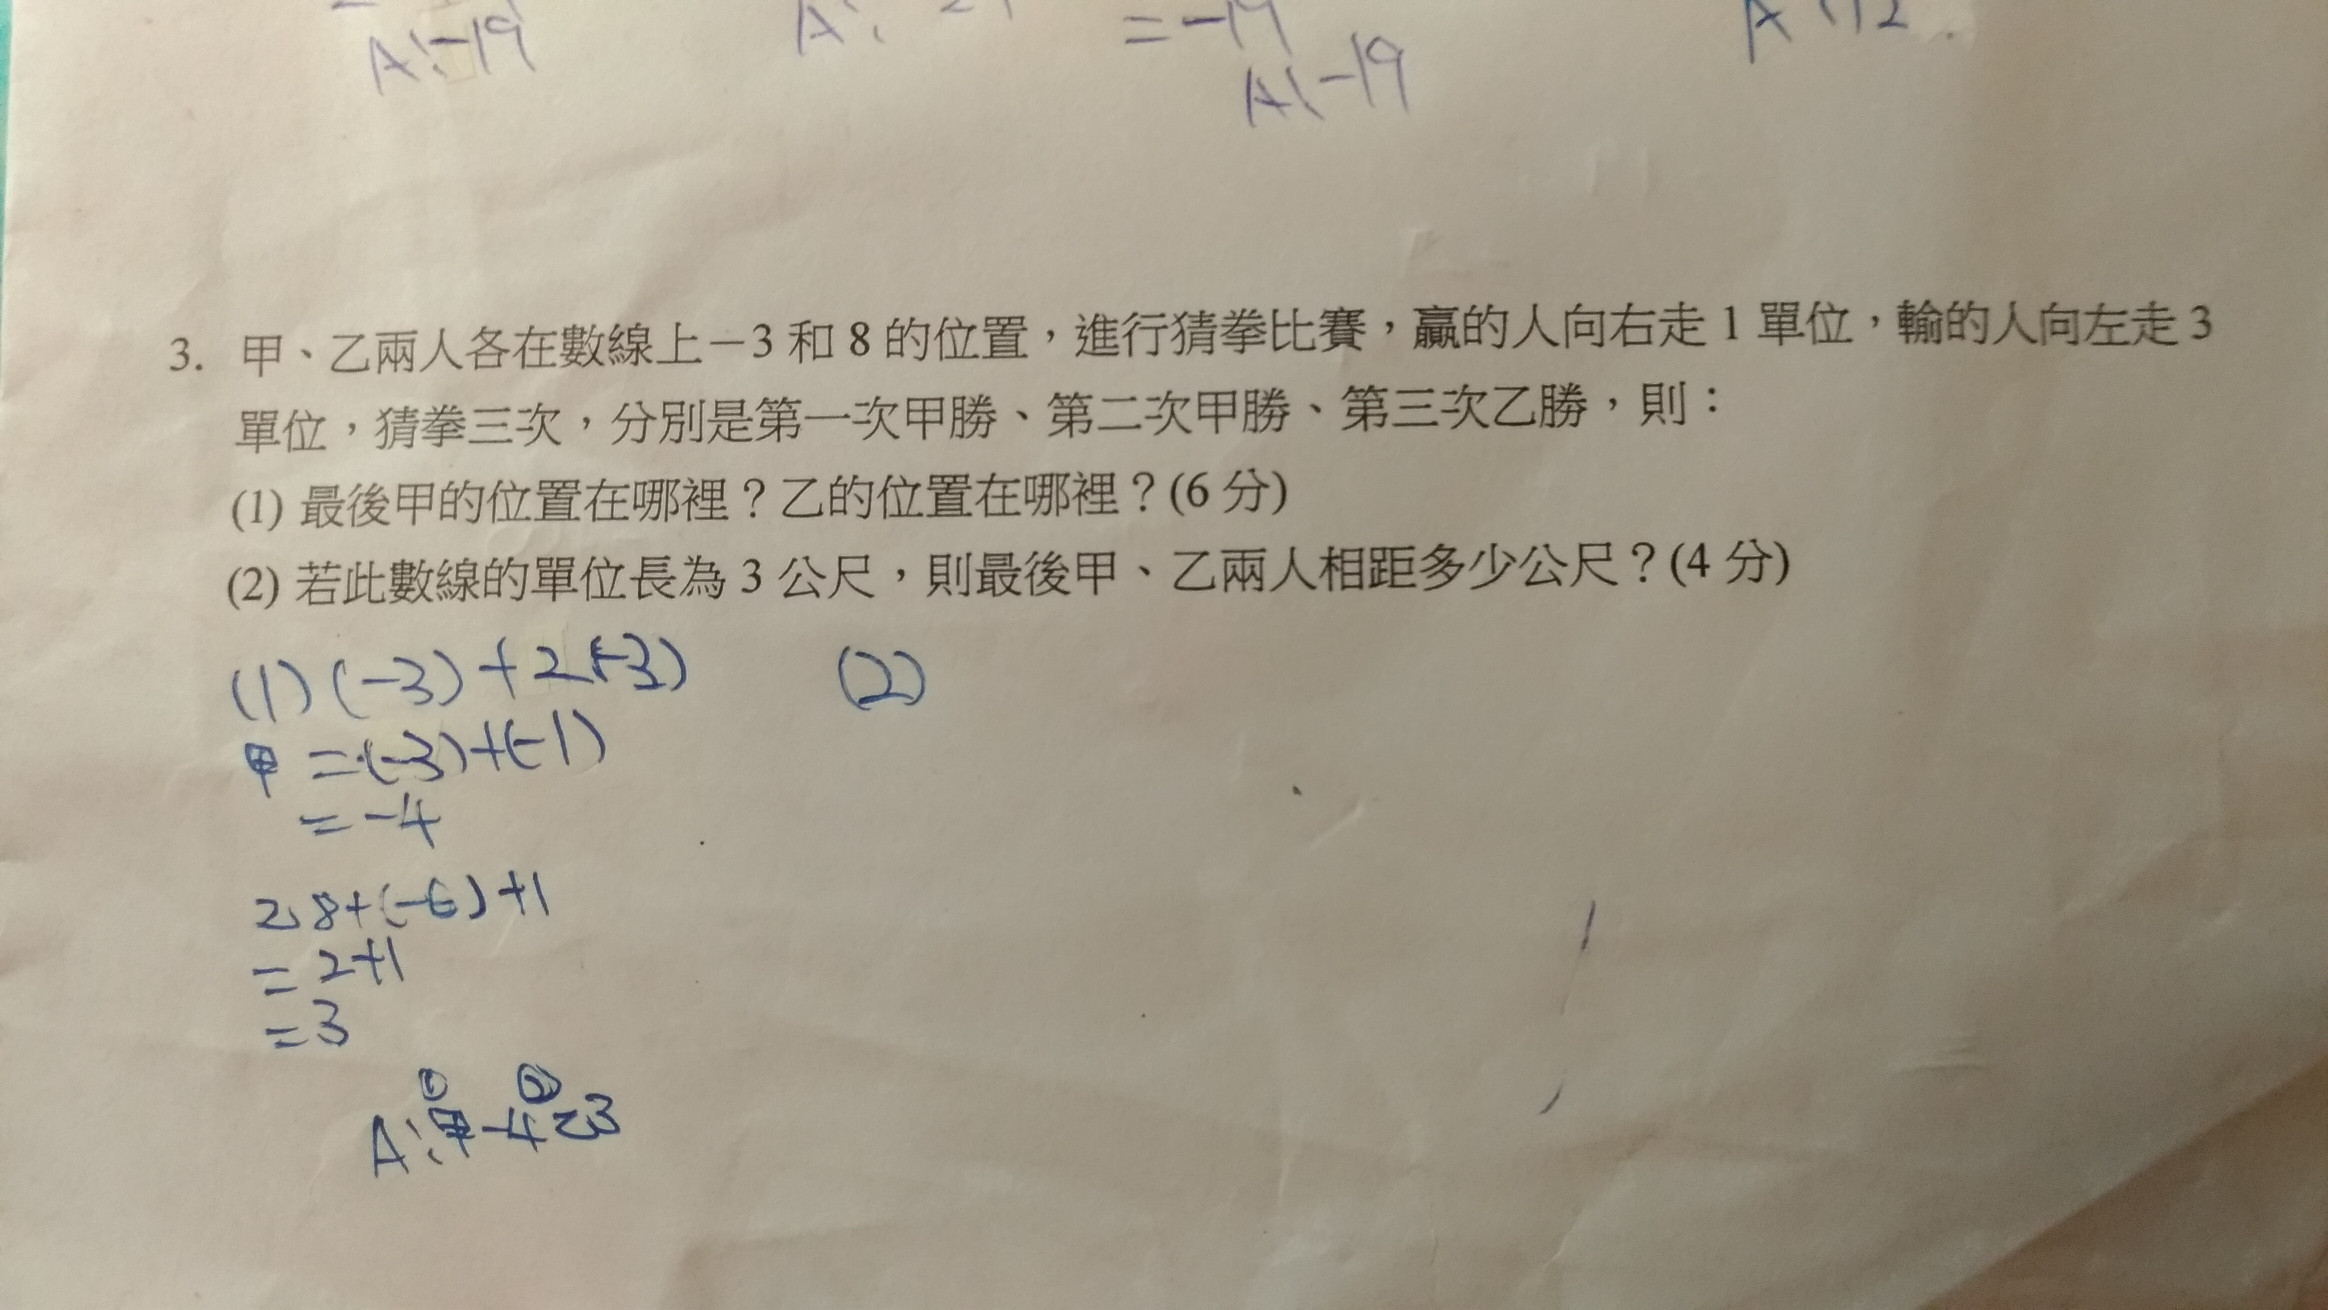 A:-19
=-19
A:-19
3. 甲、乙兩人各在數線上－3 和 8 的位置，進行猜拳比賽，贏的人向右走 1 單位，輸的人向左走 3
單位，猜拳三次，分別是第一次甲勝、第二次甲勝、第三次乙勝，則：
(1) 最後甲的位置在哪裡？乙的位置在哪裡？(6 分)
(2) 若此數線的單位長為 3 公尺，則最後甲、乙兩人相距多少公尺？(4 分)
(1) (-3)+2(-3)
甲 =(-3)+(-1)
=-4
乙 8+(-6)+1
=2+1
=3
A:①甲-4②乙3
(2)